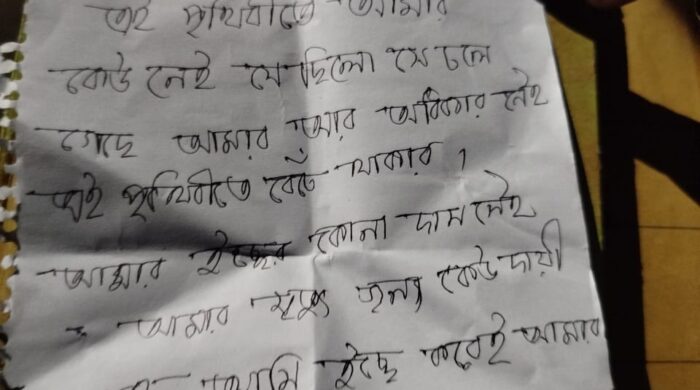 এই পৃথিবীতে আমার
কেউ নেই যে ছিলো সে চলে
গেছে আমার আর অধিকার নেই
এই পৃথিবীতে বেচেঁ থাকার ।
আমার ইচ্ছের কোনো দাম নেই
আমার মৃত্যুর জন্য কেউ দায়ী
আমি ইচ্ছে করেই আমার